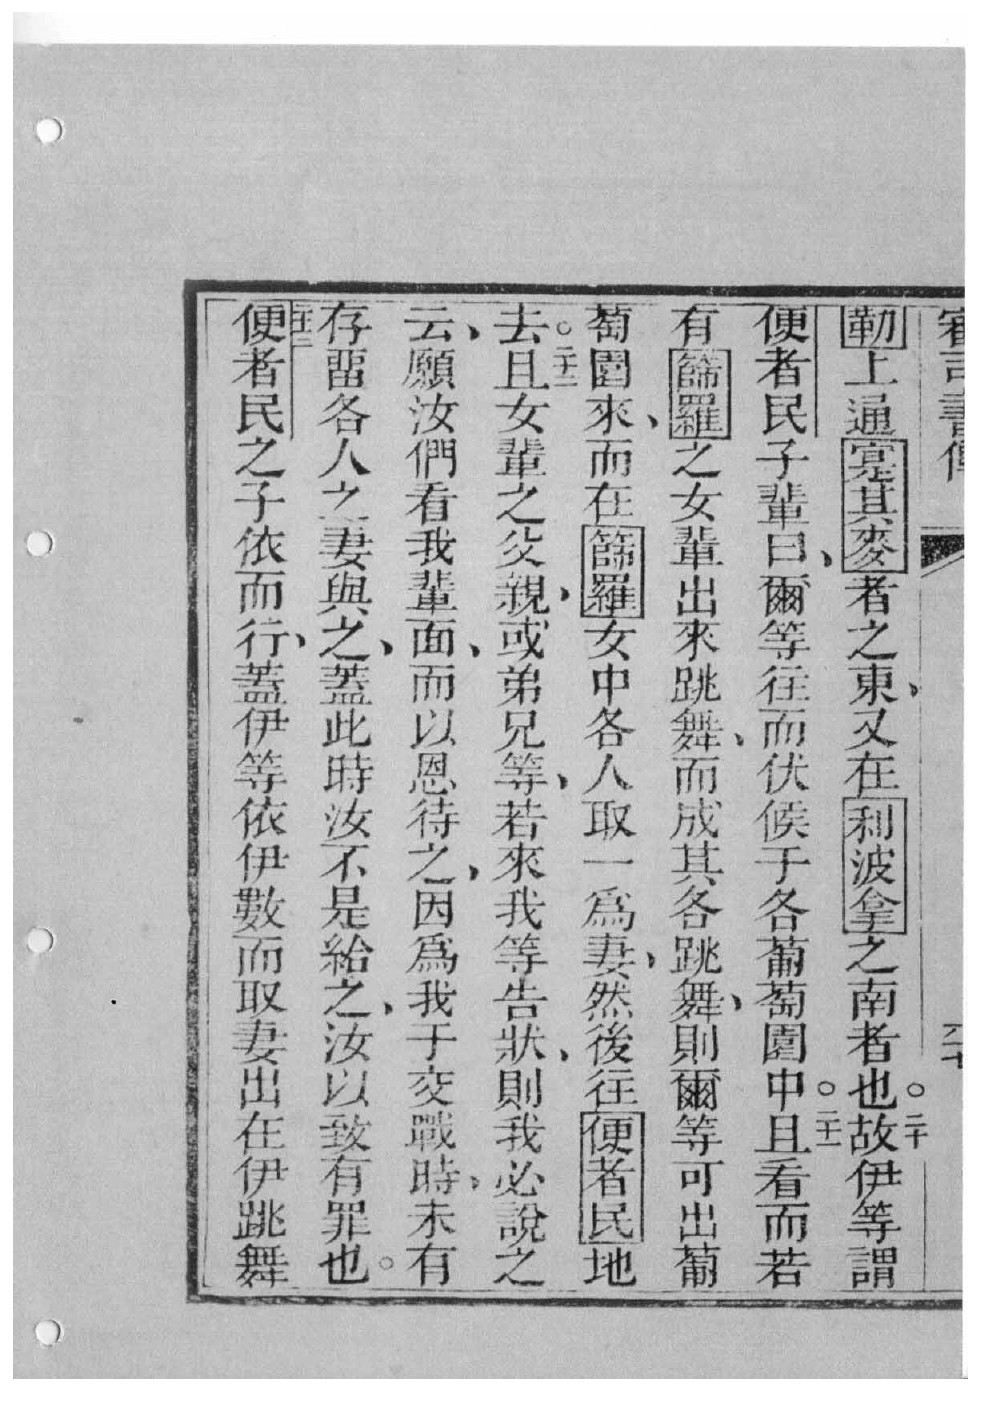 審司書傳
六十七
勒上通寔其麥者之東、又在利波拿之南者也。二十故伊等謂
便者民子輩曰、爾等往而伏候于各葡萄園中。二十一且看而若
有篩羅之女輩出來跳舞、而成其各跳舞、則爾等可出葡
萄園來、而在篩羅女中各人取一爲妻、然後往便者民地
去。二十二且女輩之父親、或弟兄等、若來我等告狀、則我必說之
云、願汝們看我輩面、而以恩待之、因爲我于交戰時、未有
存畱各人之妻與之、蓋此時汝不是給之、汝以致有罪也。
二十三便者民之子依而行、蓋伊等依伊數而取妻出在伊跳舞